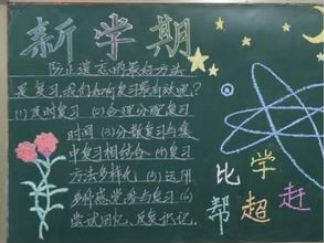 新学期
防止遗忘的最好方法
是复习,我们如何复习最有效呢?
(1)及时复习 (2)合理分配复习
时间 (3)分散复习与集
中复习相结合 (4)复习
方法多样化 (5)运用
多种感觉参与复习 (6)
尝试回忆,反复识记。
比学赶
帮超